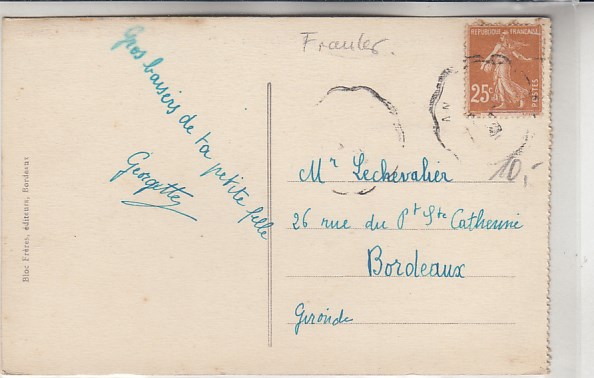 Gros baisers de ta petite fille
Georgette
Bloc Frères, éditeurs, Bordeaux
REPUBLIQUE FRANCAISE
25c
POSTES
10,-
Mr Lechevalier
26 rue du Pt Ste Catherine
Bordeaux
Gironde